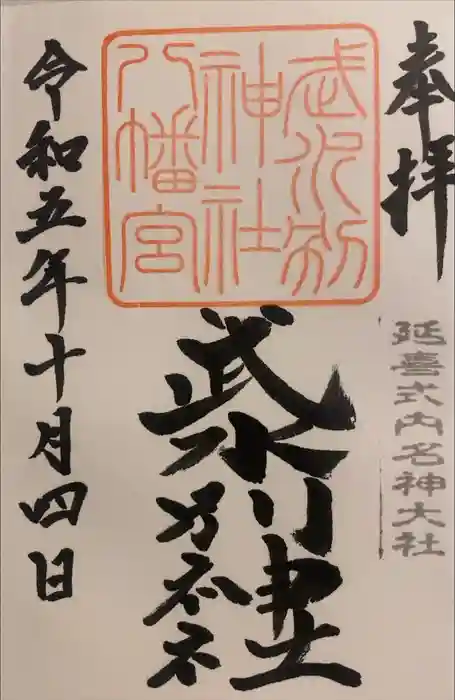 奉拝
延喜式内名神大社
武水別
神社
八幡宮
武水別神社
令和五年十月四日